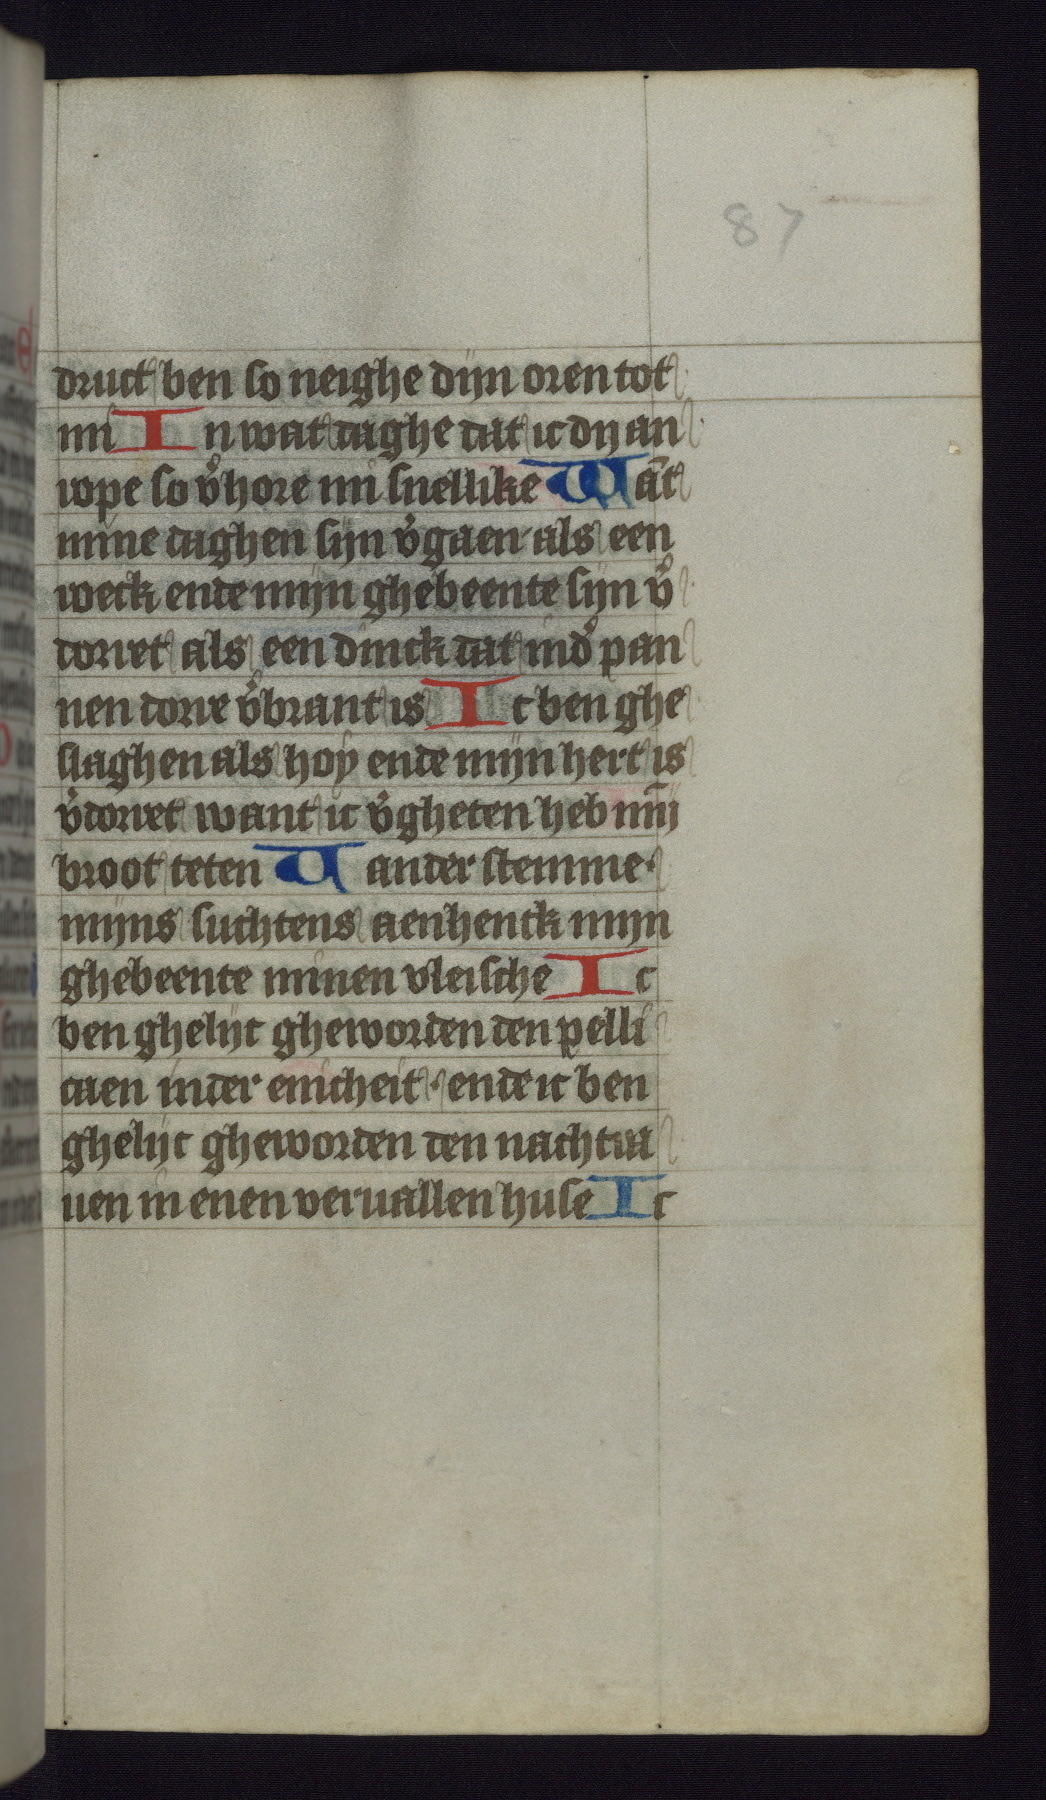 87
druct ben so neighe dijn oren tot
mi In wat daghe dat ic dy an
rope so v̾hore mi snellike Wāt
mine daghen sijn v̾gaen als een
roeck ende mijn ghebeente sijn v̾
dorret als een dinck dat in d̾ pan
nen dorre v̾brant is Ic ben ghe
slaghen als hoy ende mijn hert is
v̾dorret want ic v̾gheten heb mīj
broot teten Vander stemme·
mijns suchtens aenhenck mijn
ghebeente minen vleische Ic
ben ghelijc gheworden den pelli
caen in der enicheit· ende ic ben
ghelijc gheworden den nachtra
uen in enen veruallen huse Ic